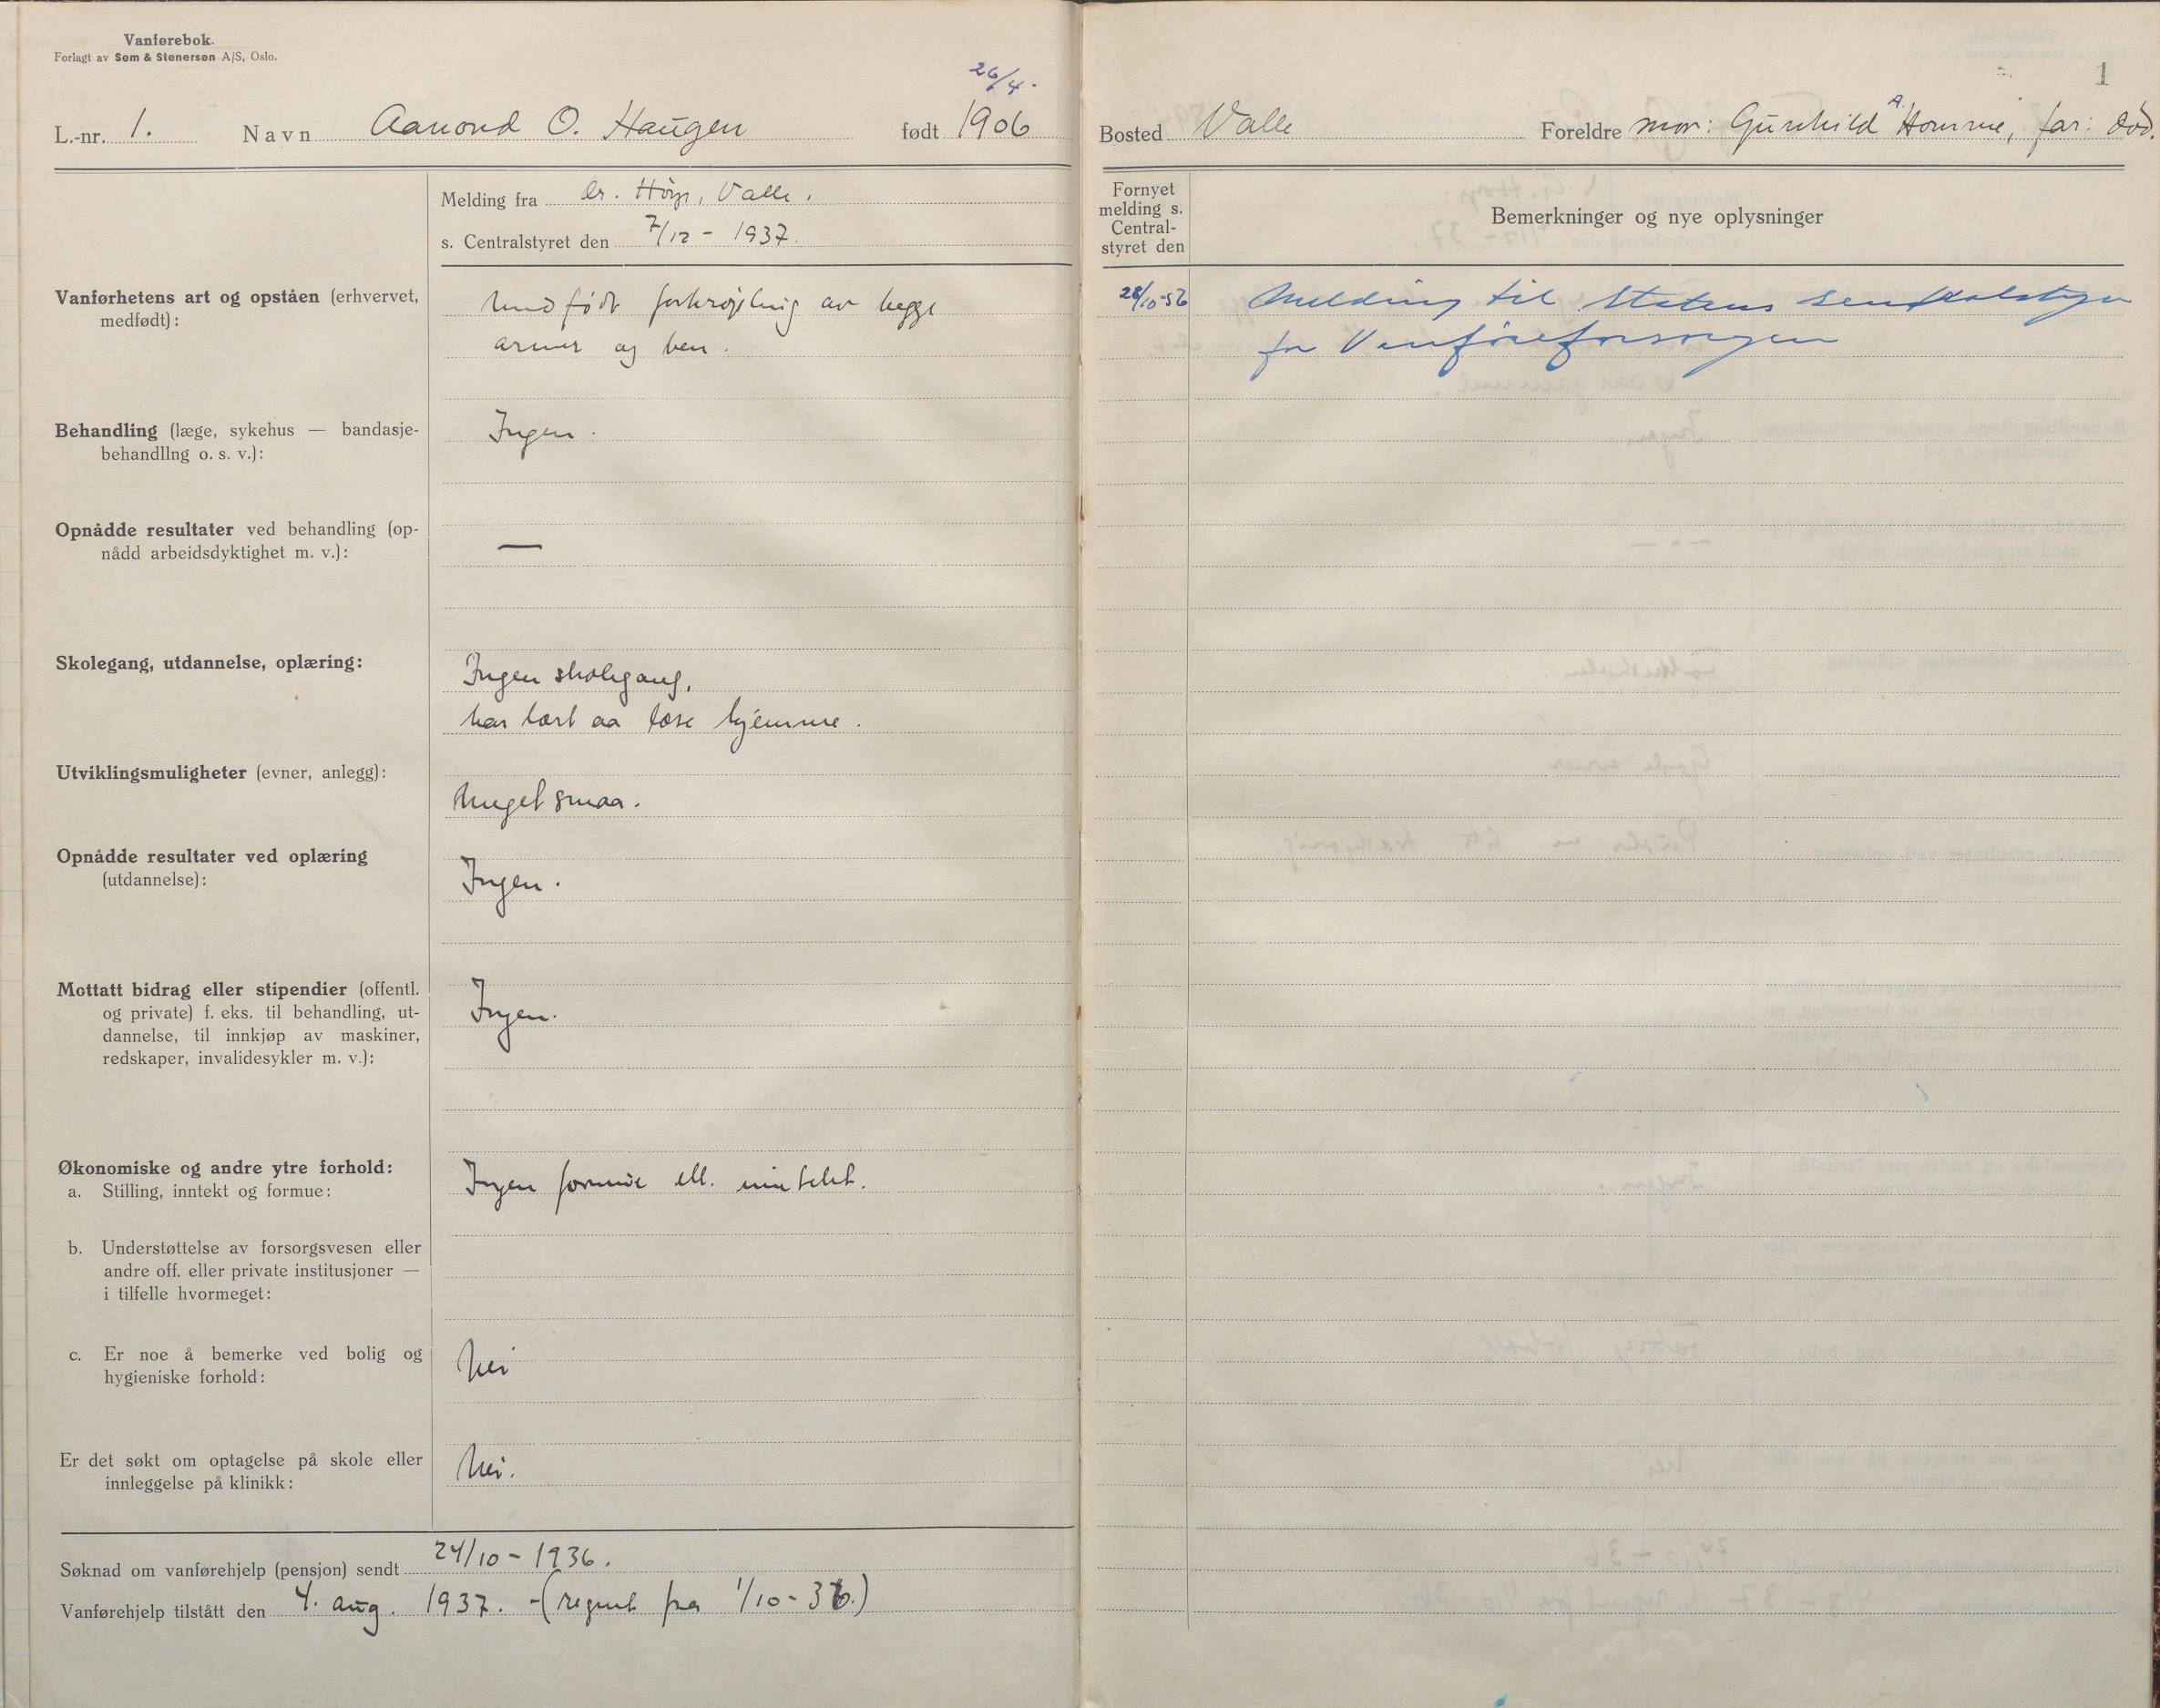 Vanførebok.
Forlagt av Sem & Stenersen A/S, Oslo.
26/4.
L.-nr. 1. Navn Aanond O. Haugen født 1906
Melding fra dr. Høye, Valle.
s. Centralstyret den 7/12 - 1937.
Vanførhetens art og opståen (erhvervet,
medfødt):
Medfødt forkrøpling av begge
armer og ben.
Behandling (læge, sykehus — bandasje-
behandling o. s. v.):
Ingen.
Opnådde resultater ved behandling (op-
nådd arbeidsdyktighet m. v.):
—
Skolegang, utdannelse, oplæring:
Ingen skolegang,
har lært aa læse hjemme.
Utviklingsmuligheter (evner, anlegg):
Meget smaa.
Opnådde resultater ved oplæring
(utdannelse):
Ingen.
Mottatt bidrag eller stipendier (offentl.
og private) f. eks. til behandling, ut-
dannelse, til innkjøp av maskiner,
redskaper, invalidesykler m. v.):
Ingen.
Økonomiske og andre ytre forhold:
a. Stilling, inntekt og formue:
Ingen formue ell. inntekt.
b. Understøttelse av forsorgsvesen eller
andre off. eller private institusjoner —
i tilfelle hvormeget:
c. Er noe å bemerke ved bolig og
hygieniske forhold:
Nei
Er det søkt om optagelse på skole eller
innleggelse på klinikk:
Nei.
Søknad om vanførehjelp (pensjon) sendt 24/10 - 1936.
Vanførehjelp tilstått den 4. aug. 1937. - (regnet fra 1/10 - 36.)
1
Bosted Valle Foreldre mor: Gunhild A. Homme, far: død.
Fornyet
melding s.
Central-
styret den
Bemerkninger og nye oplysninger
/10-56 Melding til Statens sentralstyre
for Vanføreforsorgen